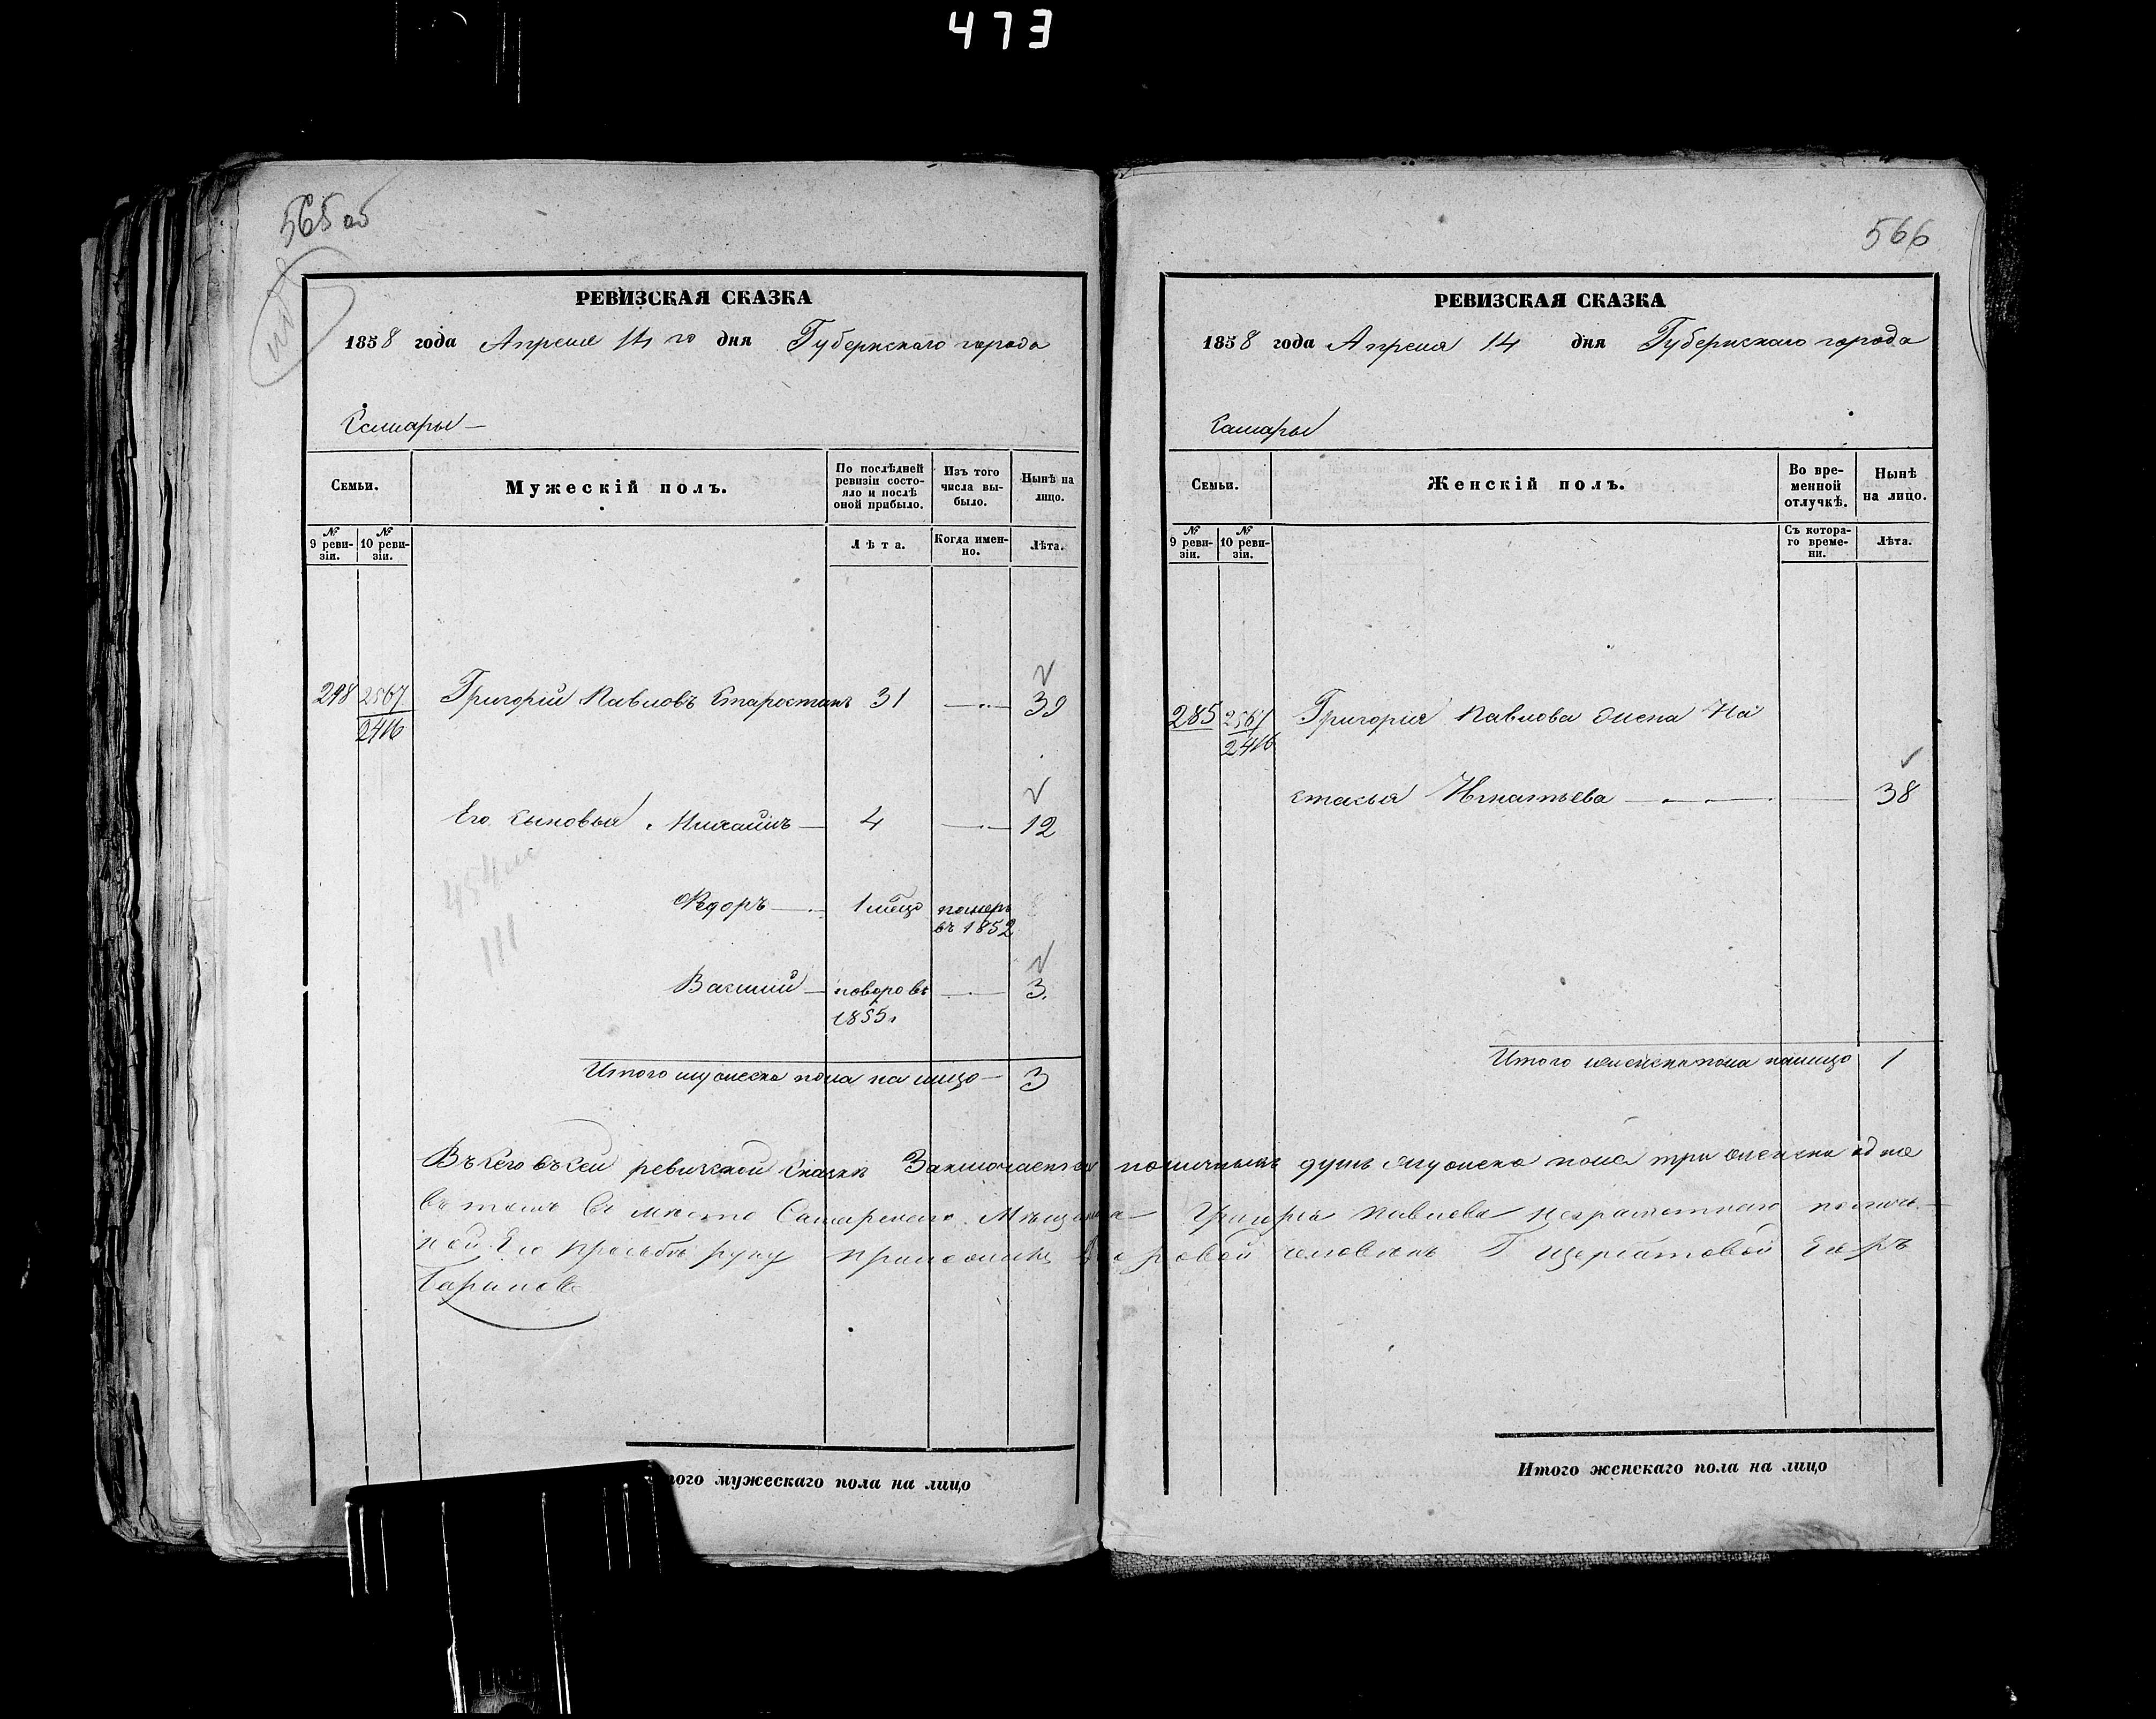 473
565 об
РЕВИЗСКАЯ СКАЗКА
1858 года Апреля 14 го дня Губернскаго города
Самары
Семьи.
Мужескій полъ.
По послѣдней ревизіи состояло и послѣ оной прибыло.
Изъ того числа выбыло.
Нынѣ на лицо.
№ 9 ревизіи.
№ 10 ревизіи.
Лѣта.
Когда именно.
Лѣта.
298 2567 Григорій Павловъ Старостинъ 31 39
2416
Его сыновья Михаилъ 4 12
Федоръ 1 мѣсяц померъ
въ 1852
Василий новоров 3.
1855.
Итого мужеска пола на лицо 3
566
РЕВИЗСКАЯ СКАЗКА
1858 года Апреля 14 дня Губернскаго города
Самары
Семьи.
Женскій полъ.
Во временной отлучкѣ.
Нынѣ на лицо.
№ 9 ревизіи.
№ 10 ревизіи.
Съ котораго времени.
Лѣта.
285 2567 Григорія Павлова жена На
2416
стасья Игнатьева 38
Итого женска пола налицо 1
Всего въ сей ревизской сказкѣ Заключается наличныхъ душъ Мужеска пола три женска одна
в томъ в место Самарскаго Мѣщанина Григорья Павлова неграмотнаго по лич
ной Его просьбѣ руку приложилъ Дворовой человекъ Г Щербатовой
Итого мужескаго пола на лицо
Итого женскаго пола на лицо